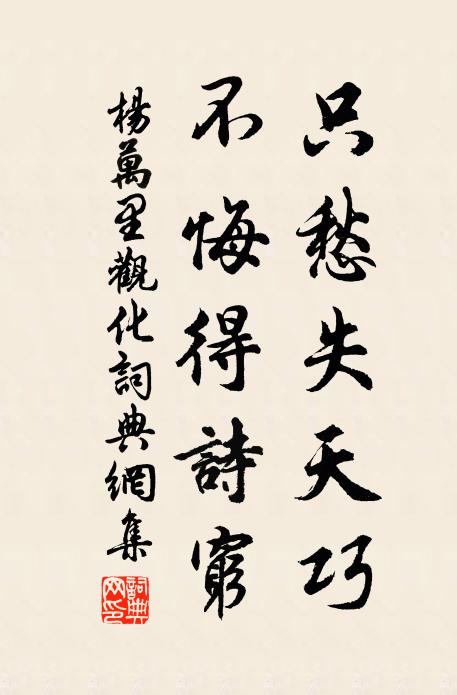 只愁失天巧
不悔得詩窮
楊萬里觀化詞典網集
詞典网印